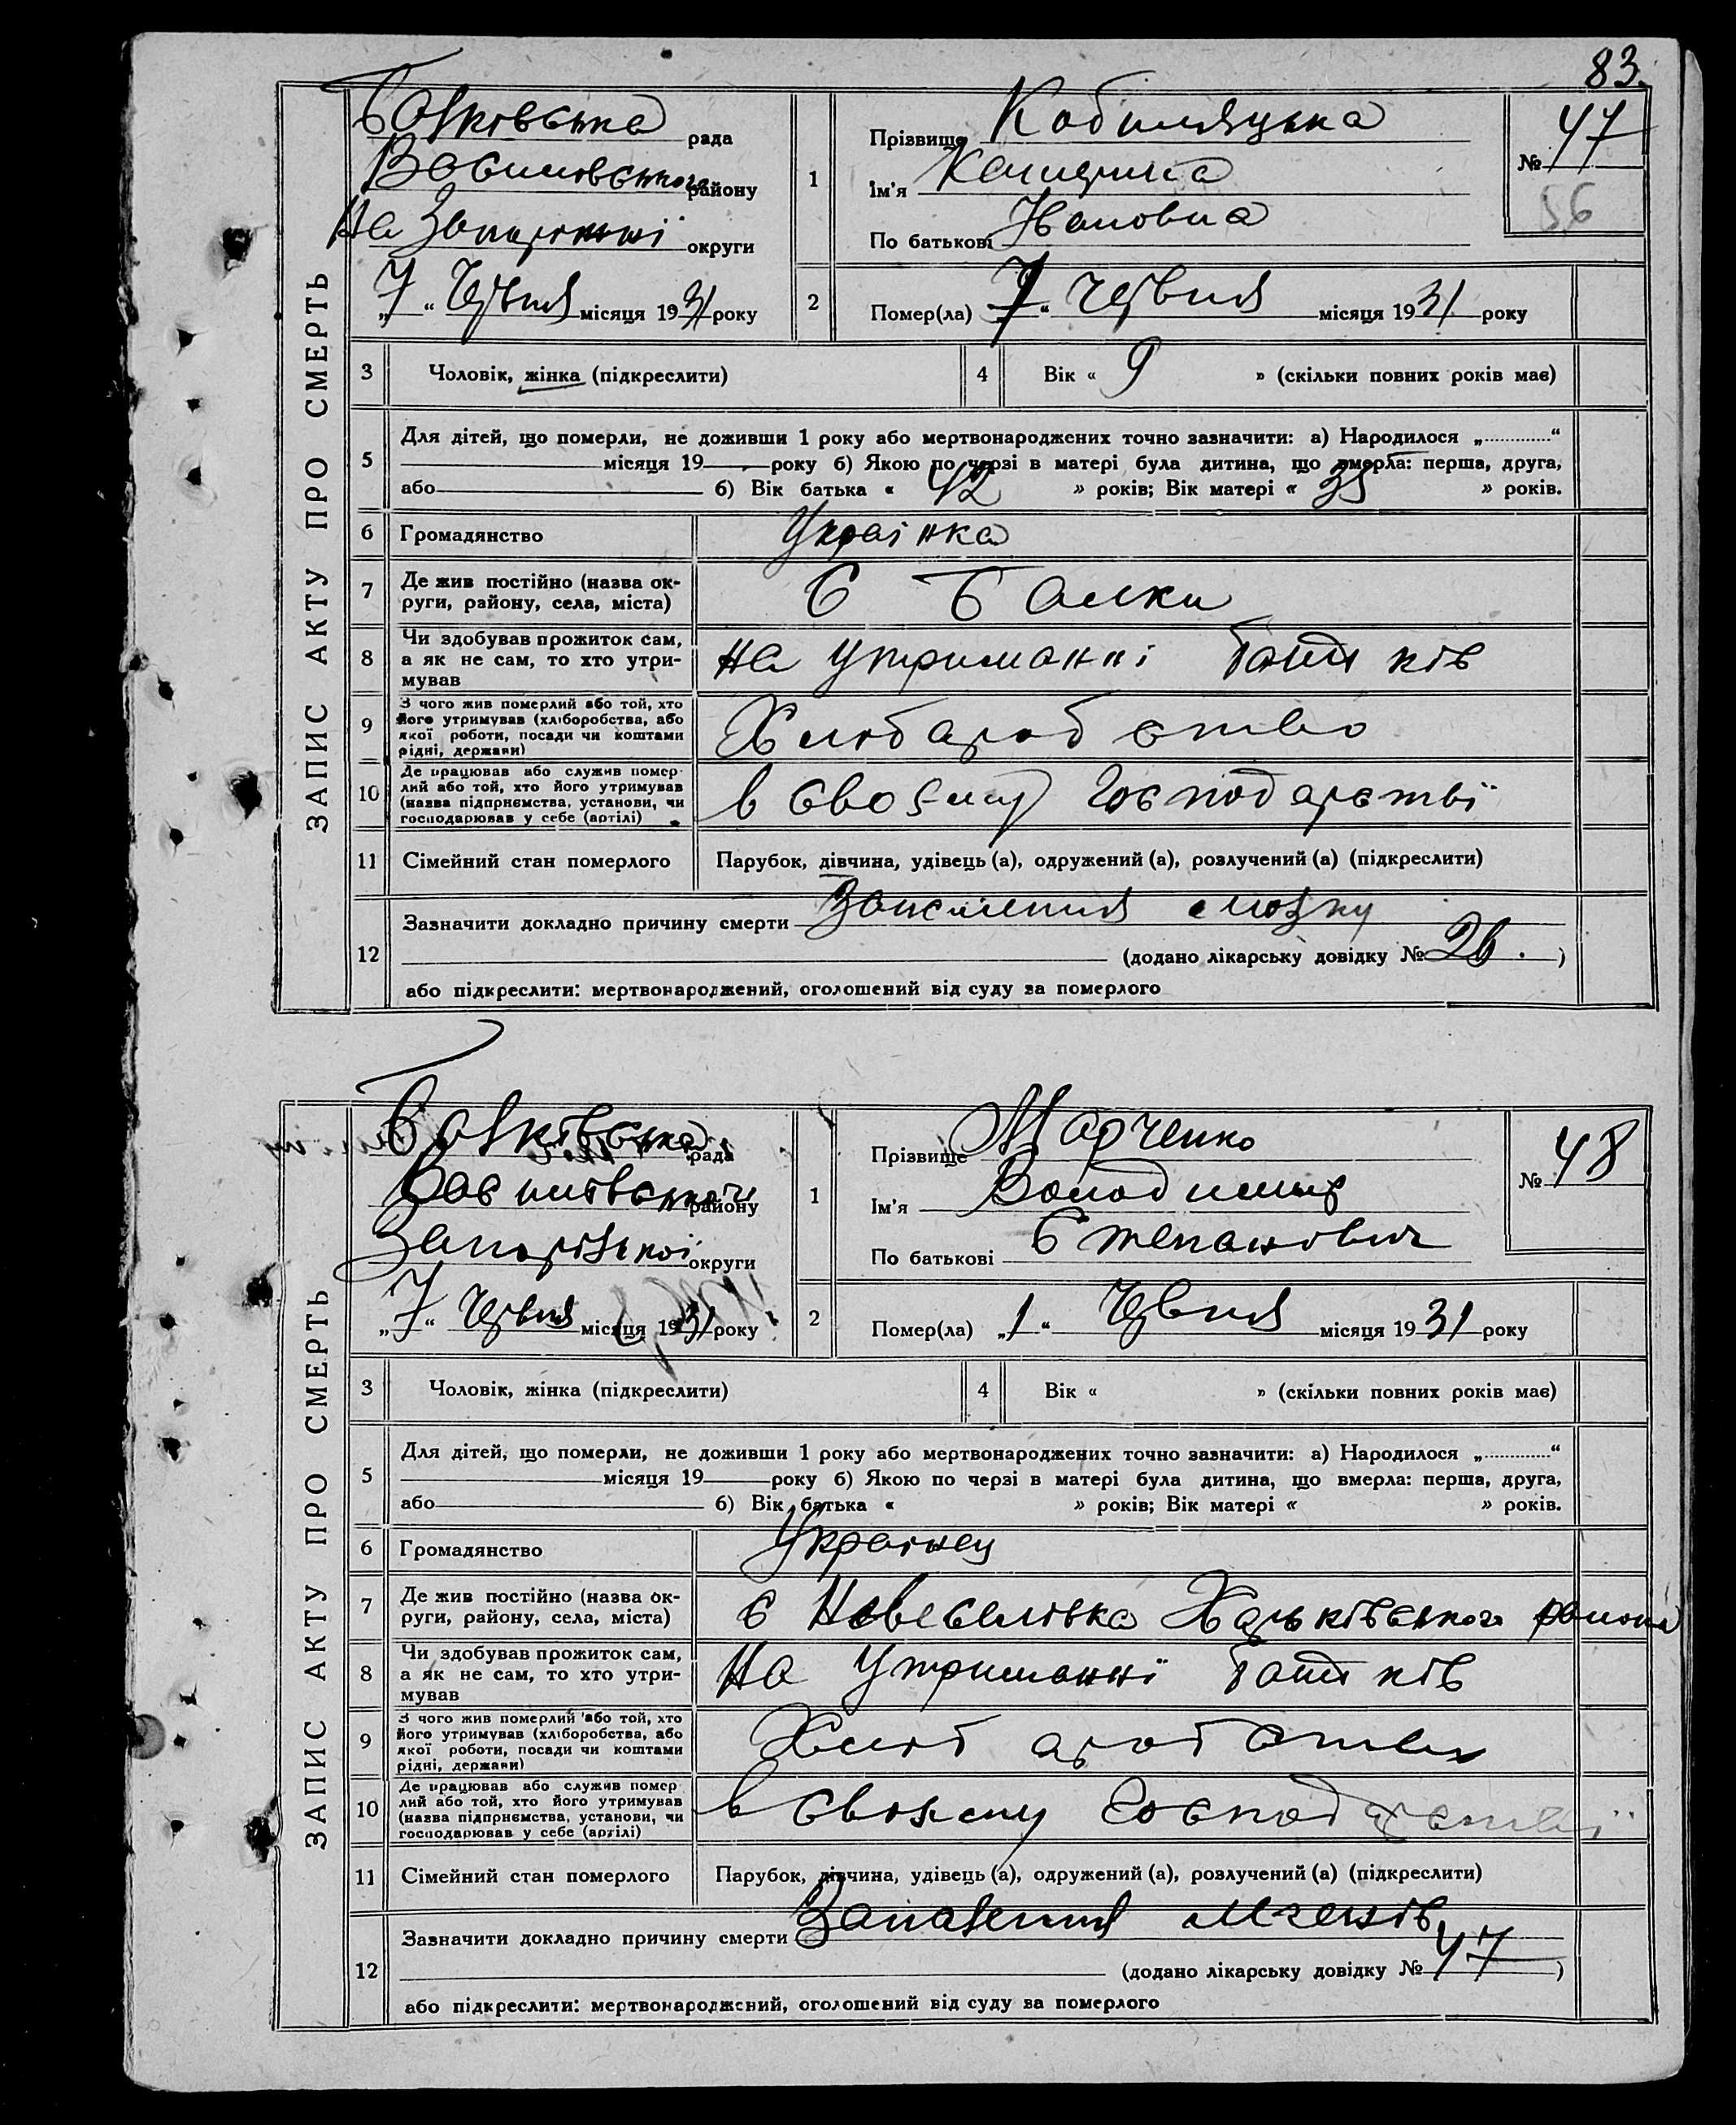 83.
ЗАПИС АКТУ ПРО СМЕРТЬ
Балківська рада
Василівського району
На Запоріжжі округи
„7“ Червня місяця 1931 року
1
Прізвище Кобиляцька
Ім'я
По батькові
№ 47
56
2
Помер(ла) „7“ Червня місяця 1931 року
3 Чоловік, жінка (підкреслити)
4 Вік « 9 » (скільки повних років має)
5
Для дітей, що померли, не доживши 1 року або мертвонароджених точно зазначити: а) Народилося „............“
місяця 19 року б) Якою по черзі в матері була дитина, що вмерла: перша, друга,
або б) Вік батька « 42 » років; Вік матері « 35 » років.
6 Громадянство Українка
7 Де жив постійно (назва ок-
руги, району, села, міста) С Балки
8 Чи здобував прожиток сам,
а як не сам, то хто утри-
мував На утриманні батьків
9 З чого жив померлий або той, хто
його утримував (хліборобства, або
якої роботи, посади чи коштами
рідні, держави) Хліборобство
10 Де працював або служив помер-
лий або той, хто його утримував
(назва підприємства, установи, чи
господарював у себе (артілі) в своєму господарстві
11 Сімейний стан померлого Парубок, дівчина, удівець (а), одружений (а), розлучений (а) (підкреслити)
12
Зазначити докладно причину смерти мозку
(додано лікарську довідку № 26. )
або підкреслити: мертвонароджений, оголошений від суду за померлого
ЗАПИС АКТУ ПРО СМЕРТЬ
Балківська рада
Василівського району
Запорізької округи
„7“ Червня місяця 1931 року
1
Прізвище Марченко
Ім'я Володимир
По батькові Степанович
№ 48
2
Помер(ла) „1“ Червня місяця 1931 року
3 Чоловік, жінка (підкреслити)
4 Вік « » (скільки повних років має)
5
Для дітей, що померли, не доживши 1 року або мертвонароджених точно зазначити: а) Народилося „............“
місяця 19 року б) Якою по черзі в матері була дитина, що вмерла: перша, друга,
або б) Вік батька « » років; Вік матері « » років.
6 Громадянство Українец
7 Де жив постійно (назва ок-
руги, району, села, міста) с Новеселівка Харьківського
8 Чи здобував прожиток сам,
а як не сам, то хто утри-
мував На утриманнї батьків
9 З чого жив померлий або той, хто
його утримував (хліборобства, або
якої роботи, посади чи коштами
рідні, держави) Хліборобство
10 Де працював або служив помер
лий або той, хто його утримував
(назва підприємства, установи, чи
господарював у себе (артілі) в своєму господарстві
11 Сімейний стан померлого Парубок, дівчина, удівець (а), одружений (а), розлучений (а) (підкреслити)
12
Зазначити докладно причину смерти Запалення
(додано лікарську довідку № 47 )
або підкреслити: мертвонароджений, оголошений від суду за померлого